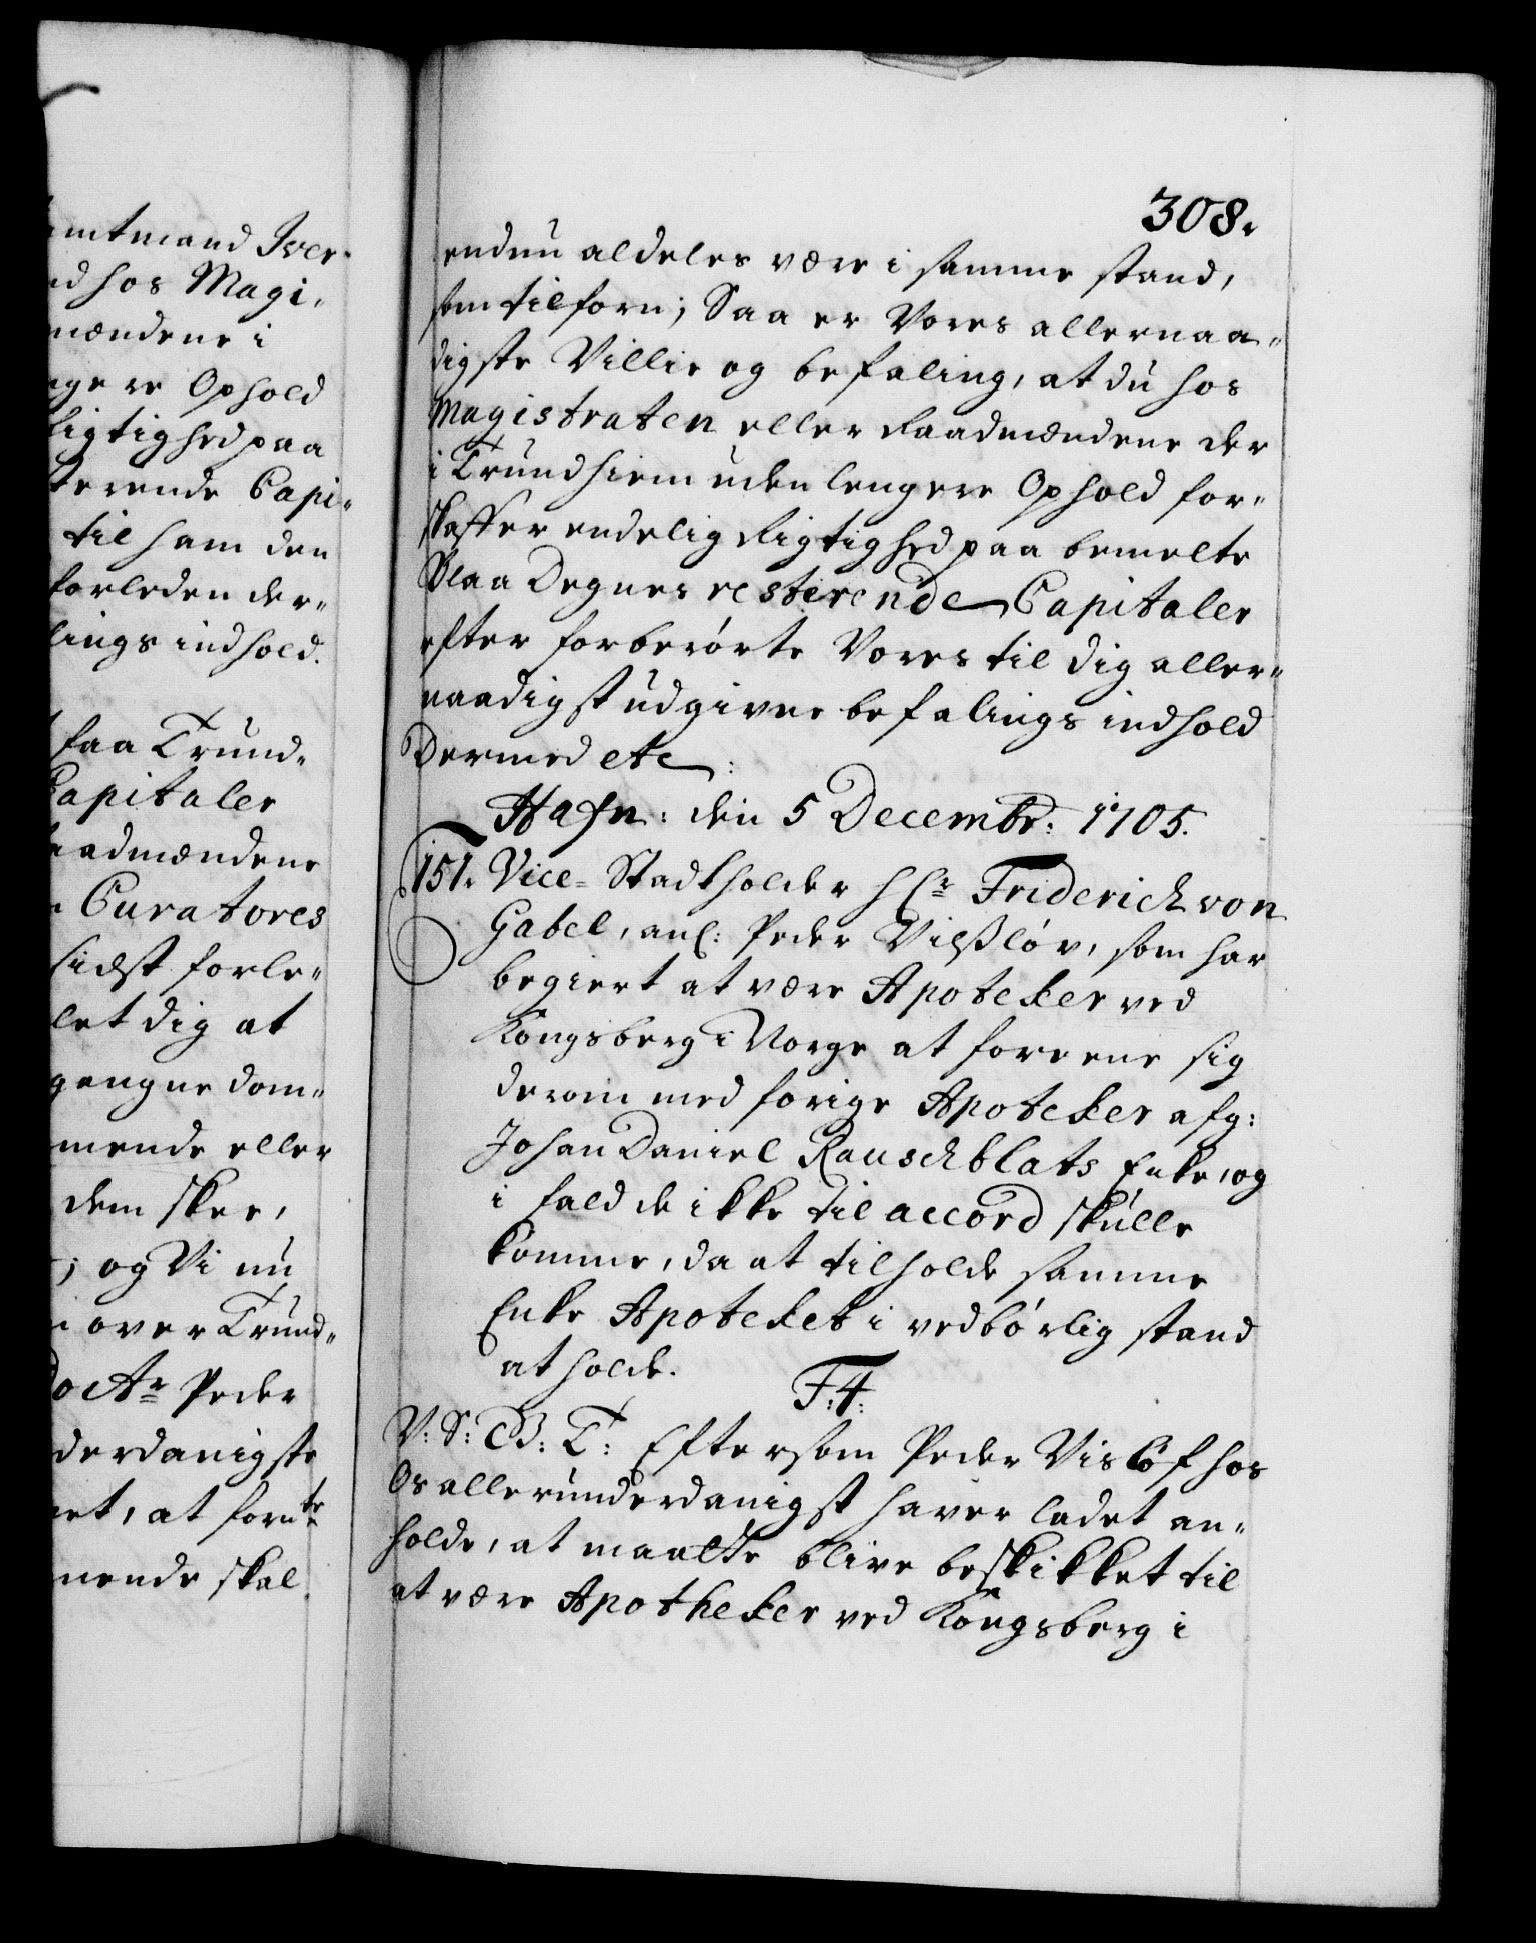 amtmand Iver
nd hos Magi-
mændene i
ngere Ophold
rigtighed paa
sterende Capi-
til ham den
forleden der-
lings indhold.
faa Trund-
Capitaler
aadmændene
Curatores
sidst forle-
let dig at
gangne dom-
mende eller
dem skee,
; og Vi nu
over Trund-
Doctr Peder
derdanigste
et, at fornte
mende skal
308.
endnu aldeles være i samme stand,
som tilforn; Saa er Vores allernaa-
digste Villie og befaling, at du hos
Magistraten eller Raadmændene der
i Trundhiem uden lengere Ophold for-
skaffer endelig Rigtighed paa bemelte
Blaa Degnes resterende Capitaler
efter forberørte Vores til dig aller-
naadigst udgivne befalings indhold
Dermed etc:
Hafn: den 5 Decembr: 1705.
151. Vice-Stadtholder Hr Friderich von
Gabel, anl: Peder Vilsløv, som har
begiert at være Apoteker ved
Kongsberg i Norge at foreene sig
derom med forige Apoteker afg:
Johan Daniel Rauschblats Enke, og
i fald de ikke til accord skulle
komme, da at tilholde samme
Enke Apoteket i vedbørlig stand
at holde.
F:4:
V: S: G: T: Eftersom Peder Visløf hos
Os allerunderdanigst haver ladet an-
holde, at maatte blive beskikket til
at være Apotheker ved Kongsberg i